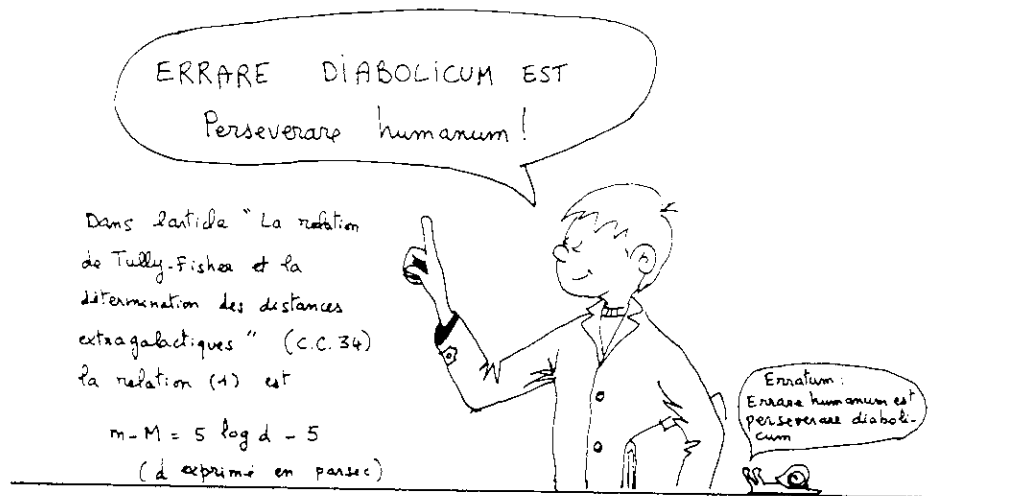 ERRARE DIABOLICUM EST
Perseverare humanum !
Dans l'article " La relation
de Tully-Fisher et la
détermination des distances
extragalactiques " (C.C. 34)
la relation (1) est
m - M = 5 log d - 5
(d exprimé en parsec)
Erratum :
Errare humanum est
perseverare diaboli-
cum